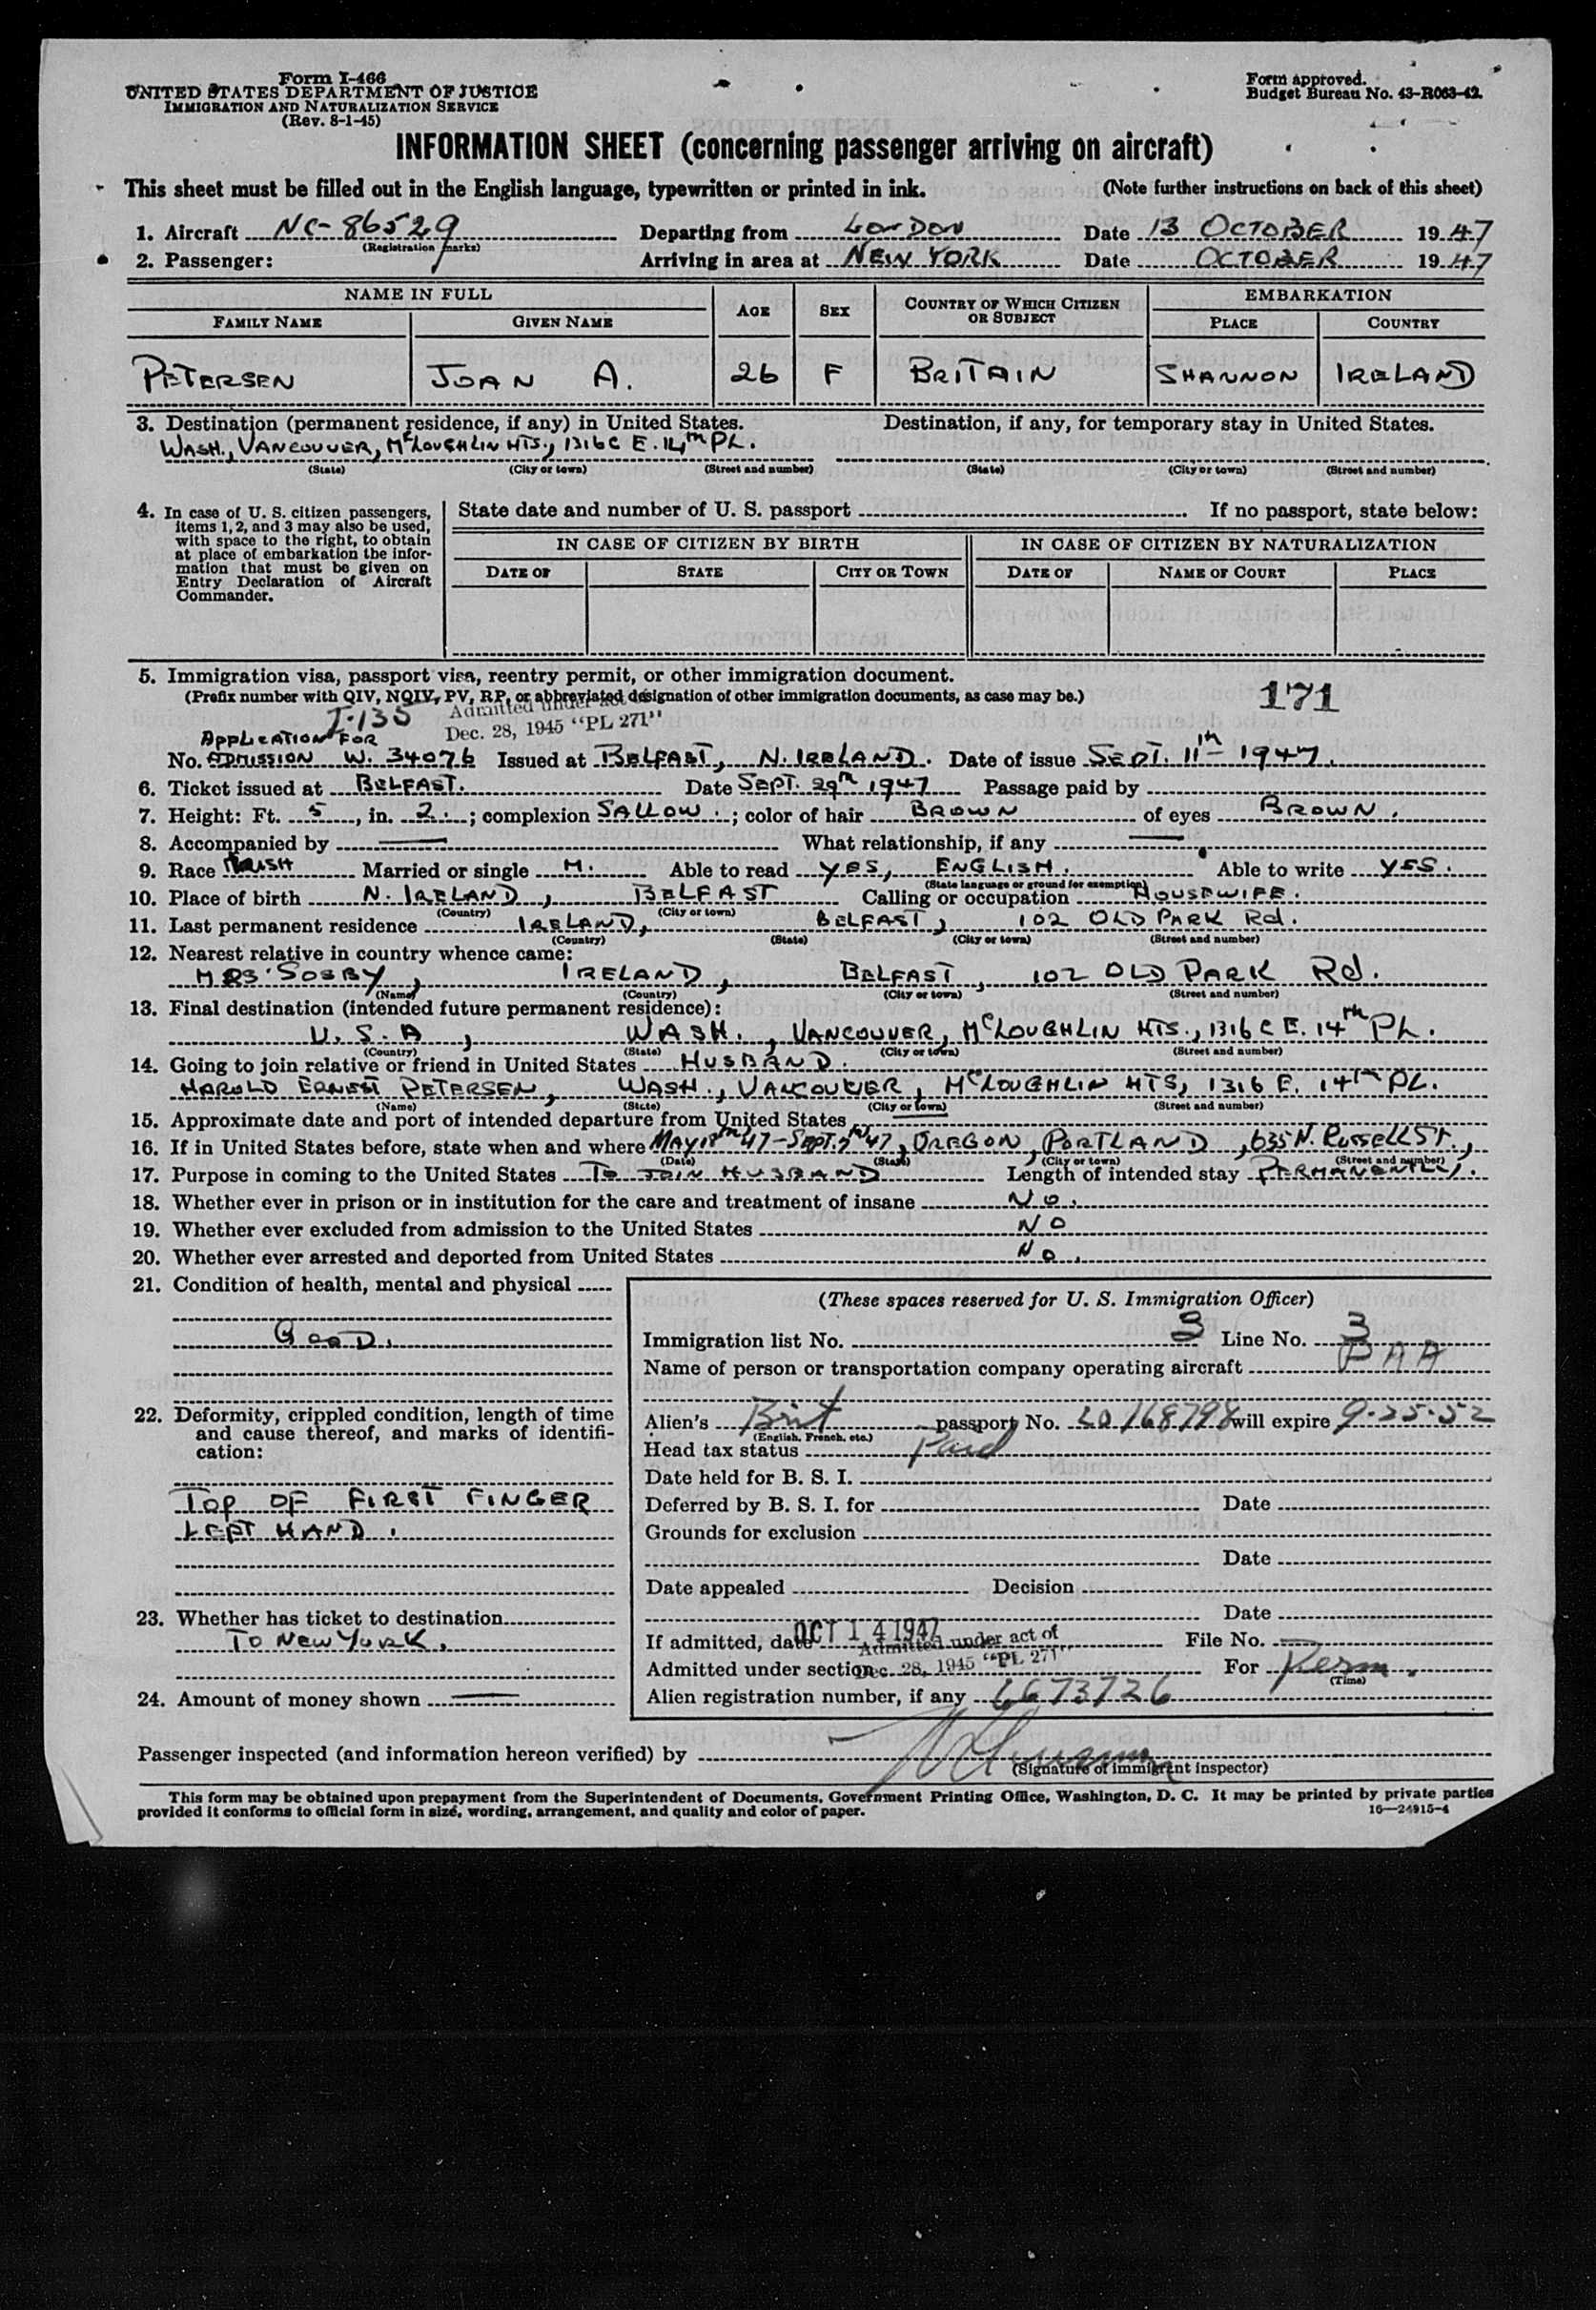 Form I-466
UNITED STATES DEPARTMENT OF JUSTICE
IMMIGRATION AND NATURALIZATION SERVICE
(Rev. 8-1-45)
Form approved.
Budget Bureau No. 43-R063-42.
INFORMATION SHEET (concerning passenger arriving on aircraft)
This sheet must be filled out in the English language, typewritten or printed in ink. (Note further instructions on back of this sheet)
1. Aircraft NC-86529 Departing from LONDON Date 13 OCTOBER 1947
(Registration marks)
2. Passenger: Arriving in area at NEW YORK Date OCTOBER 1947
NAME IN FULL AGE SEX COUNTRY OF WHICH CITIZEN OR SUBJECT EMBARKATION
FAMILY NAME GIVEN NAME PLACE COUNTRY
PETERSEN JOAN A. 26 F BRITAIN SHANNON IRELAND
3. Destination (permanent residence, if any) in United States. Destination, if any, for temporary stay in United States.
WASH., VANCOUVER, McLOUGHLIN HTS., 1316C E. 14th PL.
(State) (City or town) (Street and number) (State) (City or town) (Street and number)
4. In case of U. S. citizen passengers, items 1, 2, and 3 may also be used, with space to the right, to obtain at place of embarkation the information that must be given on Entry Declaration of Aircraft Commander.
State date and number of U. S. passport If no passport, state below:
IN CASE OF CITIZEN BY BIRTH IN CASE OF CITIZEN BY NATURALIZATION
DATE OF STATE CITY OR TOWN DATE OF NAME OF COURT PLACE
5. Immigration visa, passport visa, reentry permit, or other immigration document.
(Prefix number with QIV, NQIV, PV, RP, or abbreviated designation of other immigration documents, as case may be.)
171
I-135 Admitted under act of
Dec. 28, 1945 "PL 271"
APPLICATION FOR
No. ADMISSION W. 34076 Issued at BELFAST, N. IRELAND. Date of issue SEPT. 11th 1947.
6. Ticket issued at BELFAST. Date SEPT. 29th 1947 Passage paid by
7. Height: Ft. 5, in. 2.; complexion SALLOW.; color of hair BROWN of eyes BROWN.
8. Accompanied by — What relationship, if any —
9. Race IRISH Married or single M. Able to read YES, ENGLISH. Able to write YES.
(State language or ground for exemption)
10. Place of birth N. IRELAND, BELFAST Calling or occupation HOUSEWIFE.
(Country) (City or town)
11. Last permanent residence IRELAND, BELFAST, 102 OLD PARK Rd.
(Country) (State) (City or town) (Street and number)
12. Nearest relative in country whence came:
MRS SOSBY, IRELAND, BELFAST, 102 OLD PARK Rd.
(Name) (Country) (City or town) (Street and number)
13. Final destination (intended future permanent residence):
U. S. A, WASH., VANCOUVER, McLOUGHLIN HTS., 1316 C E. 14th PL.
(Country) (State) (City or town) (Street and number)
14. Going to join relative or friend in United States HUSBAND.
HAROLD ERNEST PETERSEN, WASH., VANCOUVER, McLOUGHLIN HTS, 1316 E. 14th PL.
(Name) (State) (City or town) (Street and number)
15. Approximate date and port of intended departure from United States —
16. If in United States before, state when and where MAY 18th 47 - SEPT. 7th 47, OREGON, PORTLAND, 635 N. RUSSELL ST.,
(Date) (State) (City or town) (Street and number)
17. Purpose in coming to the United States TO JOIN HUSBAND Length of intended stay PERMANENTLY.
18. Whether ever in prison or in institution for the care and treatment of insane NO.
19. Whether ever excluded from admission to the United States NO
20. Whether ever arrested and deported from United States NO.
21. Condition of health, mental and physical
GOOD.
22. Deformity, crippled condition, length of time and cause thereof, and marks of identification:
TOP OF FIRST FINGER
LEFT HAND.
23. Whether has ticket to destination
TO NEW YORK.
24. Amount of money shown —
(These spaces reserved for U. S. Immigration Officer)
Immigration list No. 3 Line No. 3
Name of person or transportation company operating aircraft PAA
Alien's Brit passport No. LO 168798 will expire 9-25-52
(English, French, etc.)
Head tax status Paid
Date held for B. S. I.
Deferred by B. S. I. for Date
Grounds for exclusion
Date
Date appealed Decision
Date
If admitted, date OCT 14 1947 File No. —
Admitted under act of
Admitted under section Dec. 28, 1945 "PL 271" For Perm.
(Time)
Alien registration number, if any 6673726
Passenger inspected (and information hereon verified) by
(Signature of immigrant inspector)
This form may be obtained upon prepayment from the Superintendent of Documents, Government Printing Office, Washington, D. C. It may be printed by private parties
provided it conforms to official form in size, wording, arrangement, and quality and color of paper. 16—24915-4